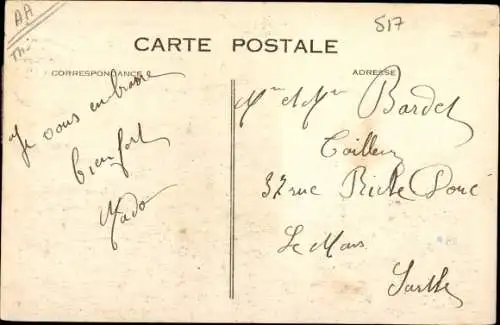 AA
517
CARTE POSTALE
CORRESPONDANCE
ADRESSE
Je vous embrasse
bien fort
Mado
Mr et Mme Bardet
Tailleur
37 rue Riche Doué
Le Mans
Sarthe